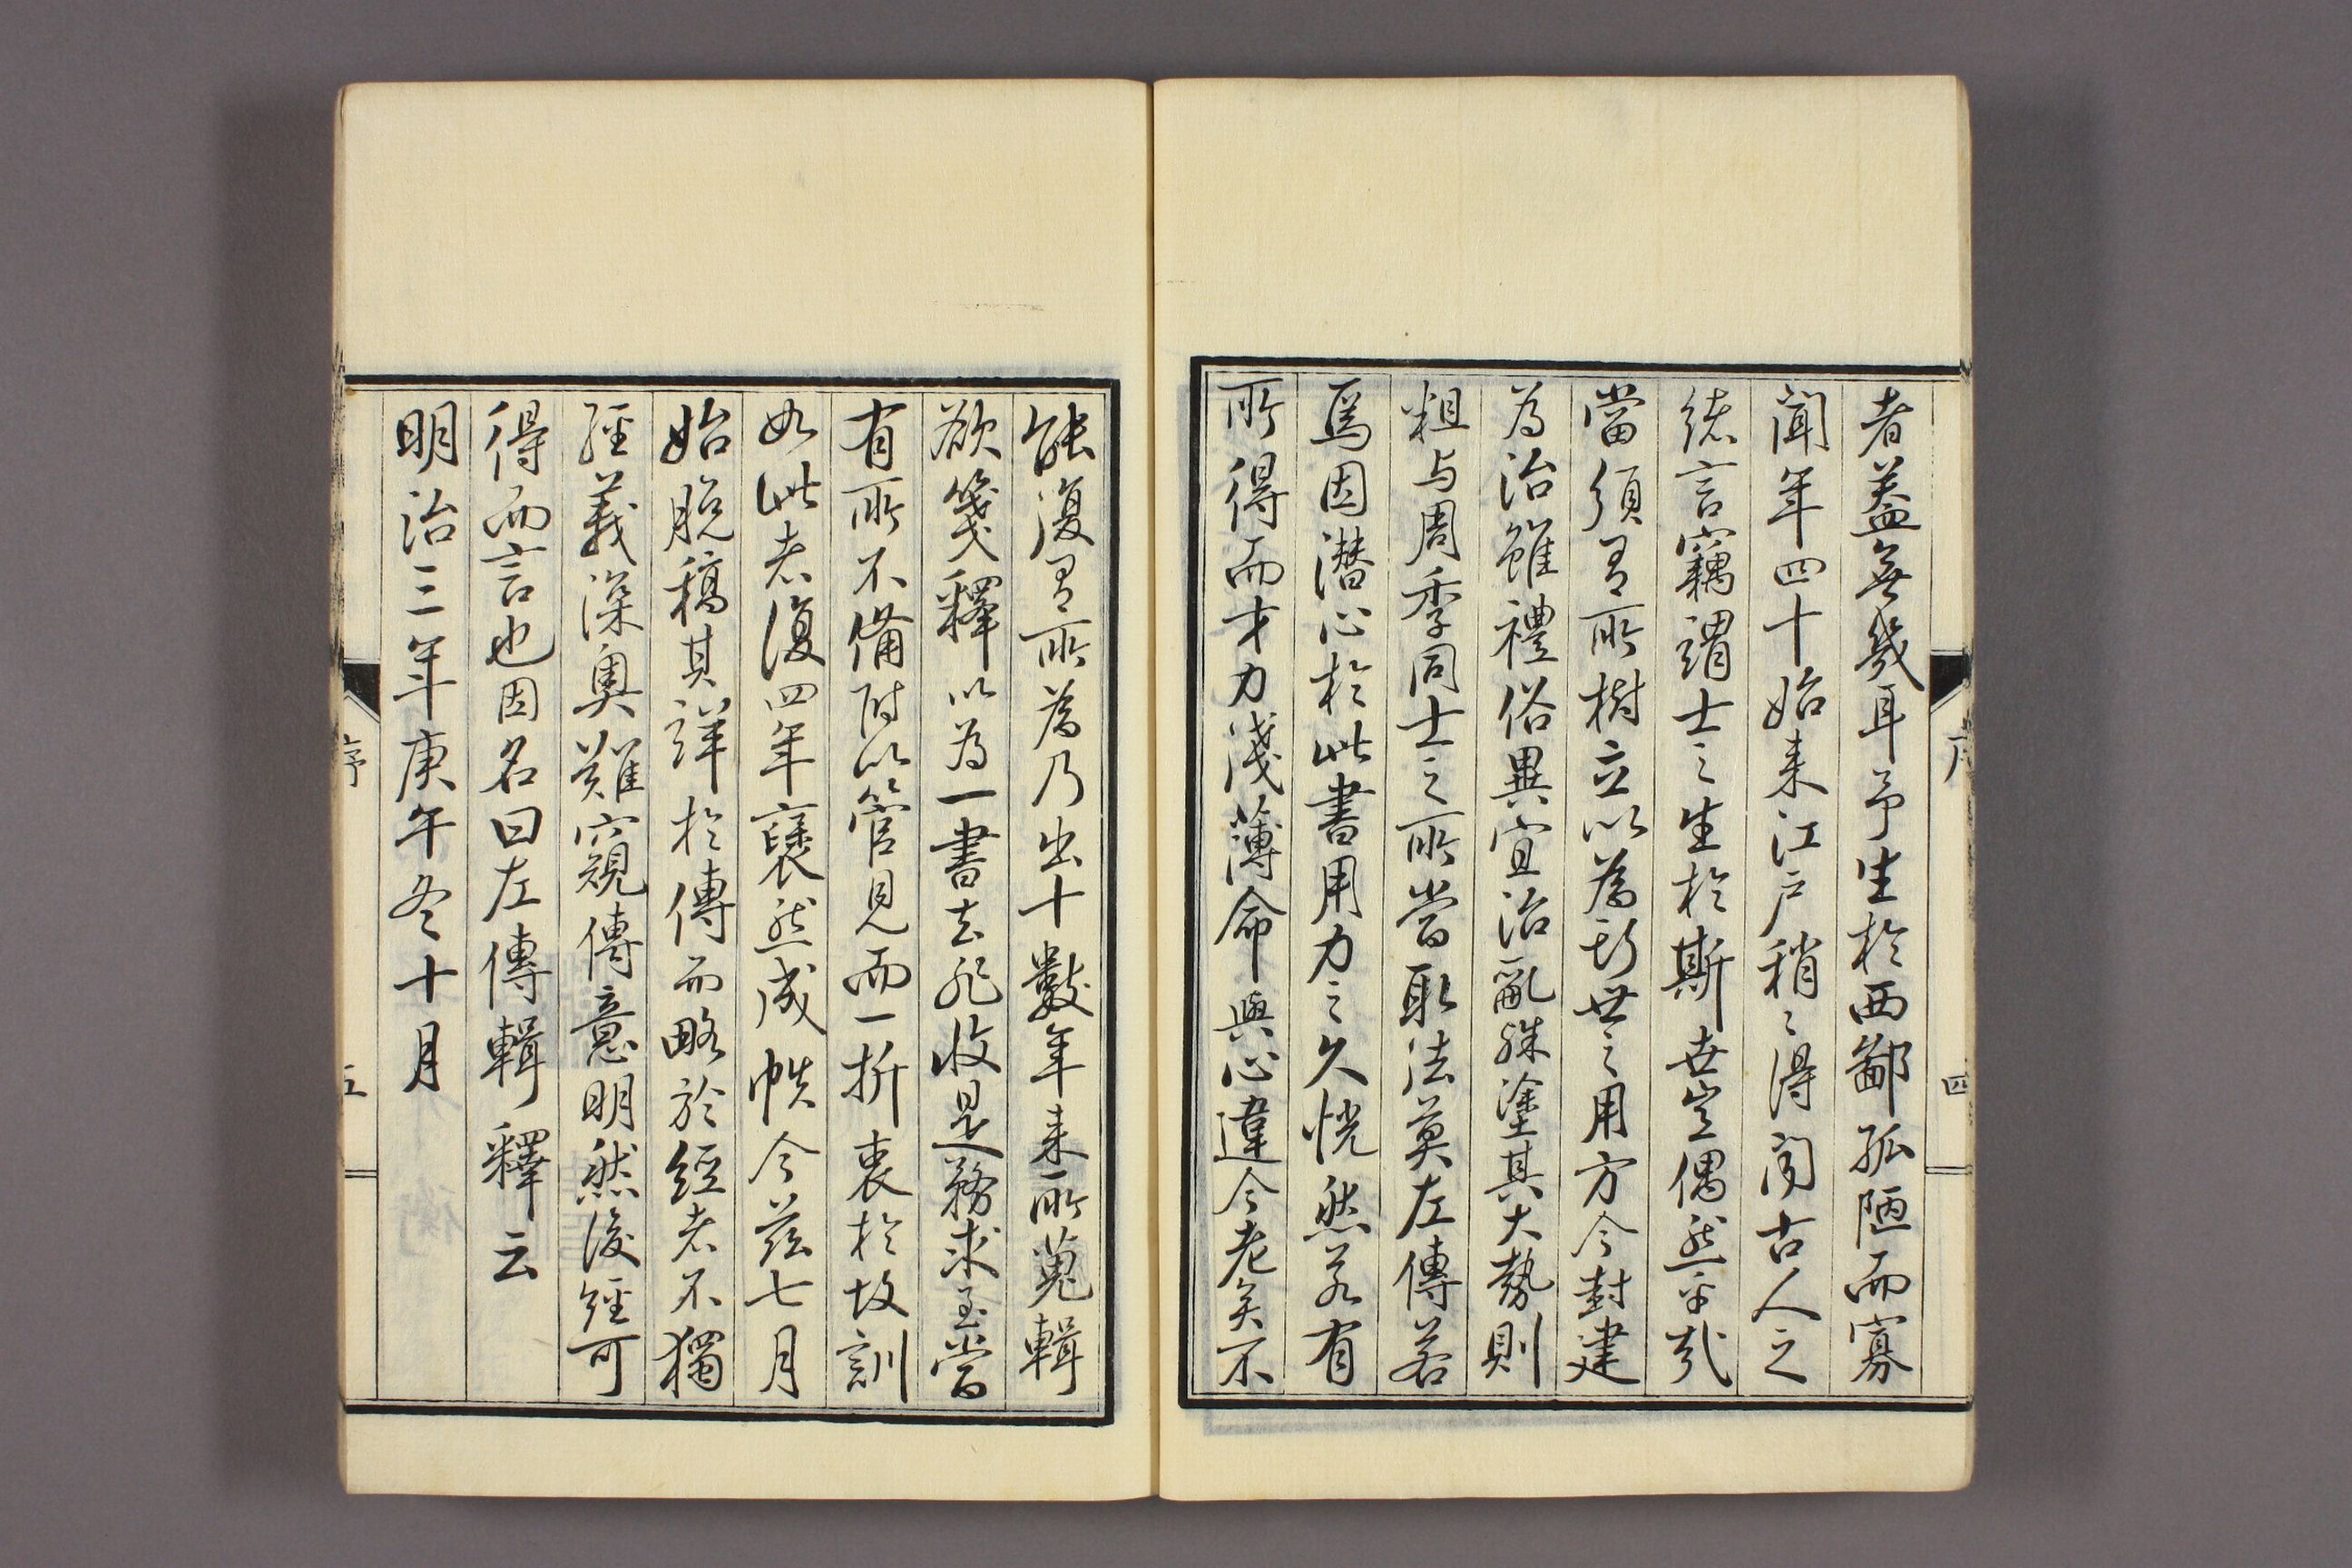 者蓋無幾耳予生於西鄙孤陋而寡
聞年四十始来江戸稍〻得聞古人之
緒言竊謂士之生於斯世豈偶然乎哉
當須有所樹立以為斯世之用方今封建
為治雖禮俗異宜治亂殊塗其大勢則
粗与周季同士之所當取法莫左傳若
焉因潜心於此書用力之久恍然若有
所得而才力淺薄命與心違今老矣不
能復有所為乃出十數年来所蒐輯
欲箋釋以為一書去非收是務求至當
有所不備附以管見而一折衷於故訓
如此者復四年裒然成帙今茲七月
始脱稿其詳於傳而略於經者不獨
經義深奥難窺傳意明然後經可
得而言也因名曰左傳輯釋云
明治三年庚午冬十月
序
四
序
五